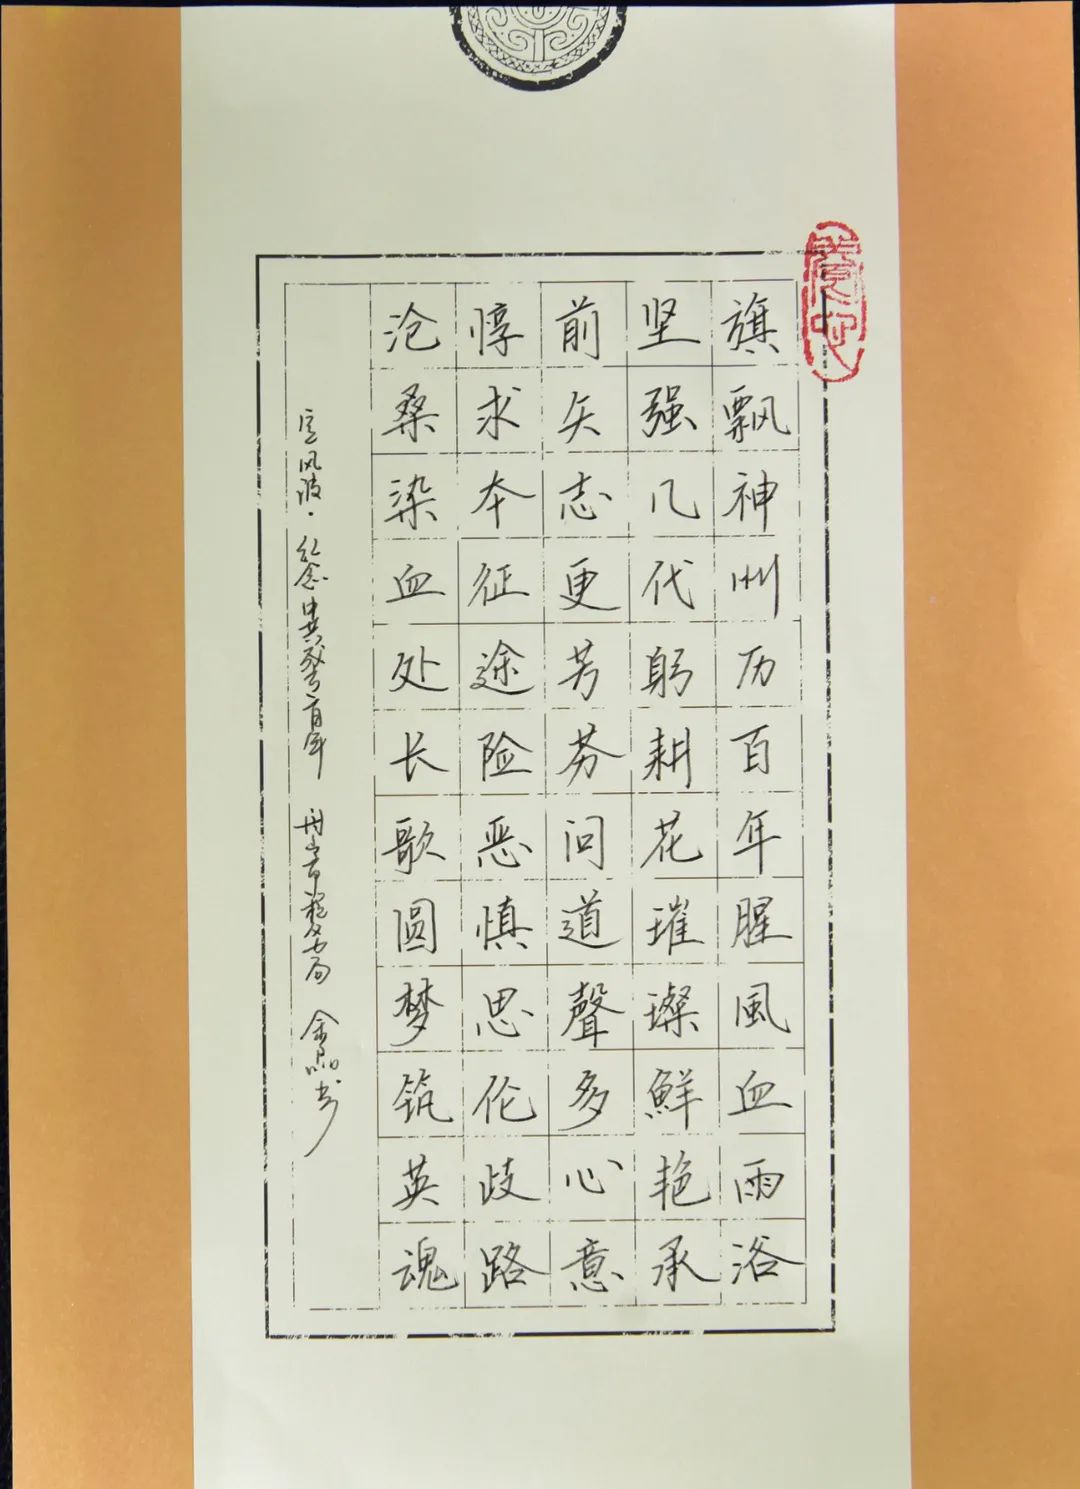 旗飘神州历百年腥風血雨浴
坚强几代躬耕花璀璨鮮艳承
前矢志更芳芬问道聲多心意
惇求本征途险恶慎思伦歧路
沧桑染血处长歌圆梦筑英魂
定风波·纪念中共建党百年 舟山市税务局 余晶书